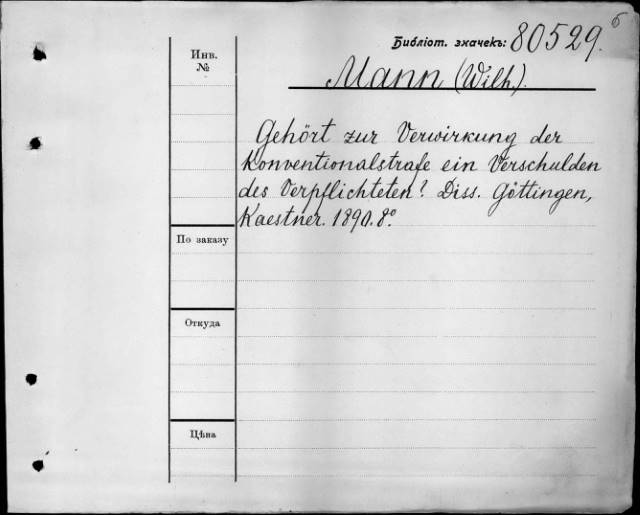 6
Библіот. значекъ: 80529.
Инв.
№
Mann (Wilh.).
Gehört zur Verwirkung der
Konventionalstrafe ein Verschulden
des Verpflichteten? Diss. Göttingen,
Kaestner. 1890. 8º
По заказу
Откуда
Цѣна